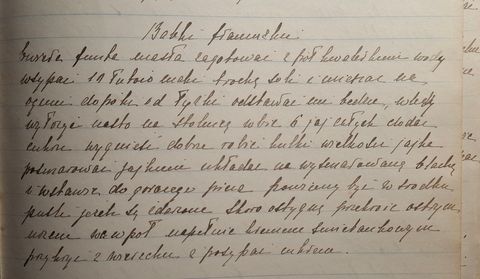 Babki śmietanki
funta masła zagotować z pół kwaterkami wody
wsypać 10 łutów mąki trochę soli i mieszać na
ogniu dopóki od łyżki odstawać nie będzie, wtedy
wyłożyć masto na stolnicę wbić 6 jaj całych dodać
cukru wygnieść dobrze robić kulki wielkości jajka
posmarować jajkiem układać na wysmarowaną blachę
i wstawić do gorącego pieca powinny być w środku
puste jeżeli są udarzone Skoro ostygną przekroić ostrym
nożem na wpół napełnić kremem śmietankowym
przykryć z wierzchu i posypać cukrem.